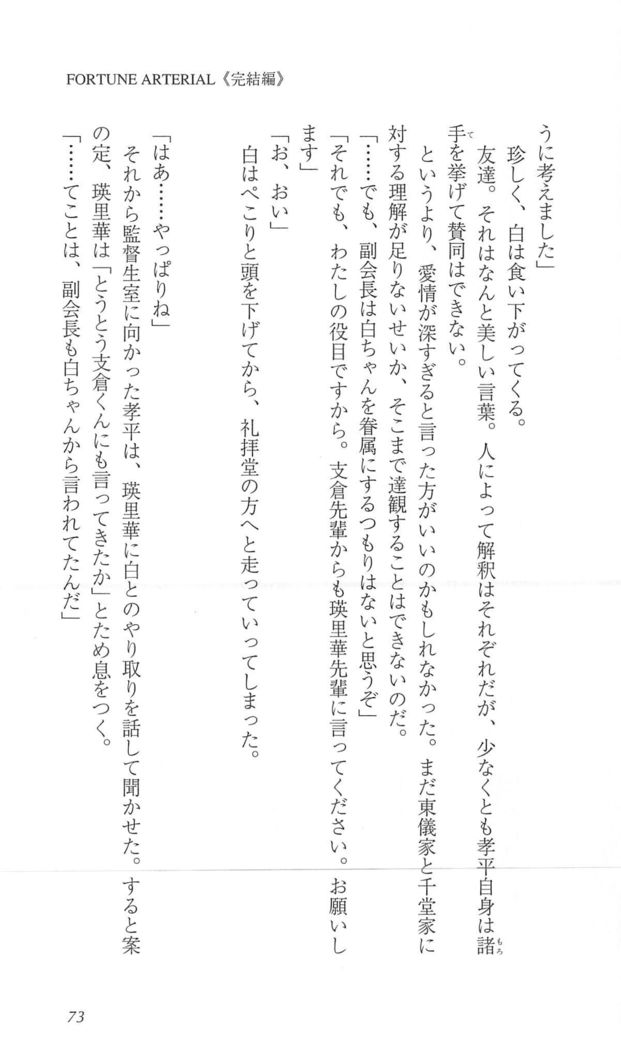 FORTUNE ARTERIAL《完結編》
うに考えました」
　珍しく、白は食い下がってくる。
　友達。それはなんと美しい言葉。人によって解釈はそれぞれだが、少なくとも孝平自身は諸
もろ
手を挙げて賛同はできない。
て
　というより、愛情が深すぎると言った方がいいのかもしれなかった。まだ東儀家と千堂家に
対する理解が足りないせいか、そこまで達観することはできないのだ。
「……でも、副会長は白ちゃんを眷属にするつもりはないと思うぞ」
「それでも、わたしの役目ですから。支倉先輩からも瑛里華先輩に言ってください。お願いし
ます」
「お、おい」
　白はぺこりと頭を下げてから、礼拝堂の方へと走っていってしまった。
「はあ……やっぱりね」
　それから監督生室に向かった孝平は、瑛里華に白とのやり取りを話して聞かせた。すると案
の定、瑛里華は「とうとう支倉くんにも言ってきたか」とため息をつく。
「……てことは、副会長も白ちゃんから言われてたんだ」
73